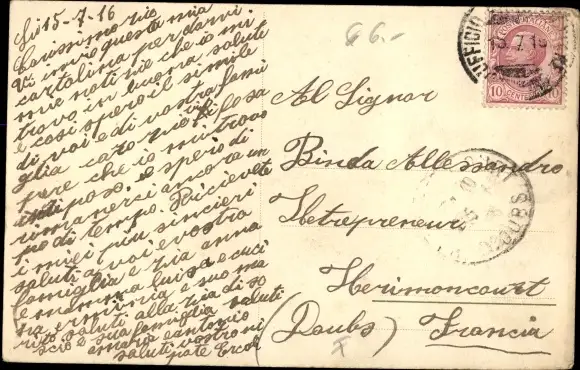 Li 15-7-16
Carissimo zio
Vi invio questa mia
cartolina per darvi
mie notizie che io mi
trovo in buona salute
e così spero il simile
di voi e di vostra fami
glia caro zio vi fo sa
pere che io mi trovo
in riposo e spero di
rimanerci ancora un
po di tempo. Ricievete
i miei più sinceri
saluti a voi e vostra
famiglia e zia anna
e mamma luisa e cuci
na erminia e suo ma
rito saluti alla zia di so
scio e sua famiglia saluti
saluti vostro ni
pote Ercole
66.-
UFFICIO
15.7.16
10 CENT
Al Signor
Binda Allessandro
Hetrepreneur
Herimoncourt
(Doubs) Francia
DOUBS